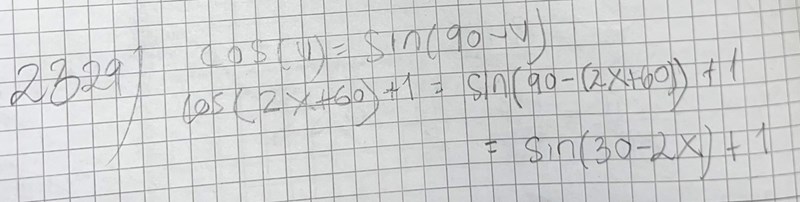 2329) cos(v) = sin(90-v)
cos(2x+60)+1 = sin(90-(2x+60))+1
= sin(30-2x)+1